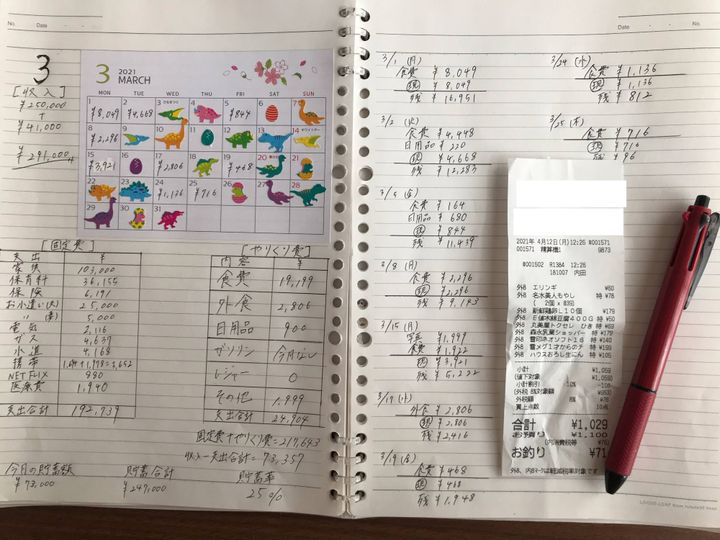 No.
Date
3
[収入]
¥250,000
+
¥41,000
¥291,000
3 2021 MARCH
MON TUE WED THU FRI SAT SUN
1 2 3 4 5 6 7
¥8,049 ¥4,668 ¥844
8 9 10 11 12 13 14
¥2,296
15 16 17 18 19 20 21
¥3,921 ¥2,806 ¥468
22 23 24 25 26 27 28
¥1,136 ¥716
29 30 31
[固定費]
支出 ¥
家賃 103,000
保育料 36,155
保険 6,191
お小遣い(夫) 25,000
〃 5,000
電気 2,116
ガス 4,637
水道 4,168
携帯
NETFLIX 990
医療費 1,940
支出合計 192,739
[やりくり費]
内容 ¥
食費 19,199
外食 2,806
日用品 900
ガソリン 今月なし
レジャー 0
その他 1,999
支出合計 24,904
固定費+やりくり費=217,643
収入-支出合計=73,357
今月の貯蓄額 貯蓄合計 貯蓄率
¥73,000 ¥249,000 25%
3/1 (月)
食費 ¥8,049
現 ¥8,049
残 ¥16,951
3/2 (火)
食費 ¥4,448
日用品 ¥220
現 ¥4,668
残 ¥12,283
3/5 (金)
食費 ¥164
日用品 ¥680
現 ¥844
残 ¥11,439
3/8 (月)
食費 ¥2,296
現 ¥2,296
残 ¥9,143
3/15 (月)
¥1,999
食費 ¥1,922
現 ¥3,921
残 ¥5,222
3/17 (水)
外食 ¥2,806
現 ¥2,806
残 ¥2,416
3/19 (金)
食費 ¥468
現 ¥468
残 ¥1,948
3/24 (水)
食費 ¥1,136
現 ¥1,136
残 ¥812
3/25 (木)
食費 ¥716
現 ¥716
残 ¥96
No.
Date
2021年 4月12日(月)12:26 #001571
001571 精算機1 9873
#001502 R1384 12:26
181007 内田
外8 エリンギ ¥60
外8 名水美人もやし 特 ¥78
( 2個 x @39)
外8 新鮮鶏卵L10個 ¥179
外8 丸美屋トクセレ ひき 特 ¥69
外8 森永乳業ショッパー 特 ¥179
外8 雪印ネオソフト16 特 ¥140
外8 雪メグ1才からのチ 特 ¥169
外8 ハウスおろし生にん 特 ¥105
小計 ¥1,059
(値下対象 ¥1,059)
小計割引
外税額 8% ¥76
買上点数 10点
合計 ¥1,029
お預り ¥1,100
(内消費税等 ¥76)
お釣り ¥71
外8、内8マークは軽減税率対象です